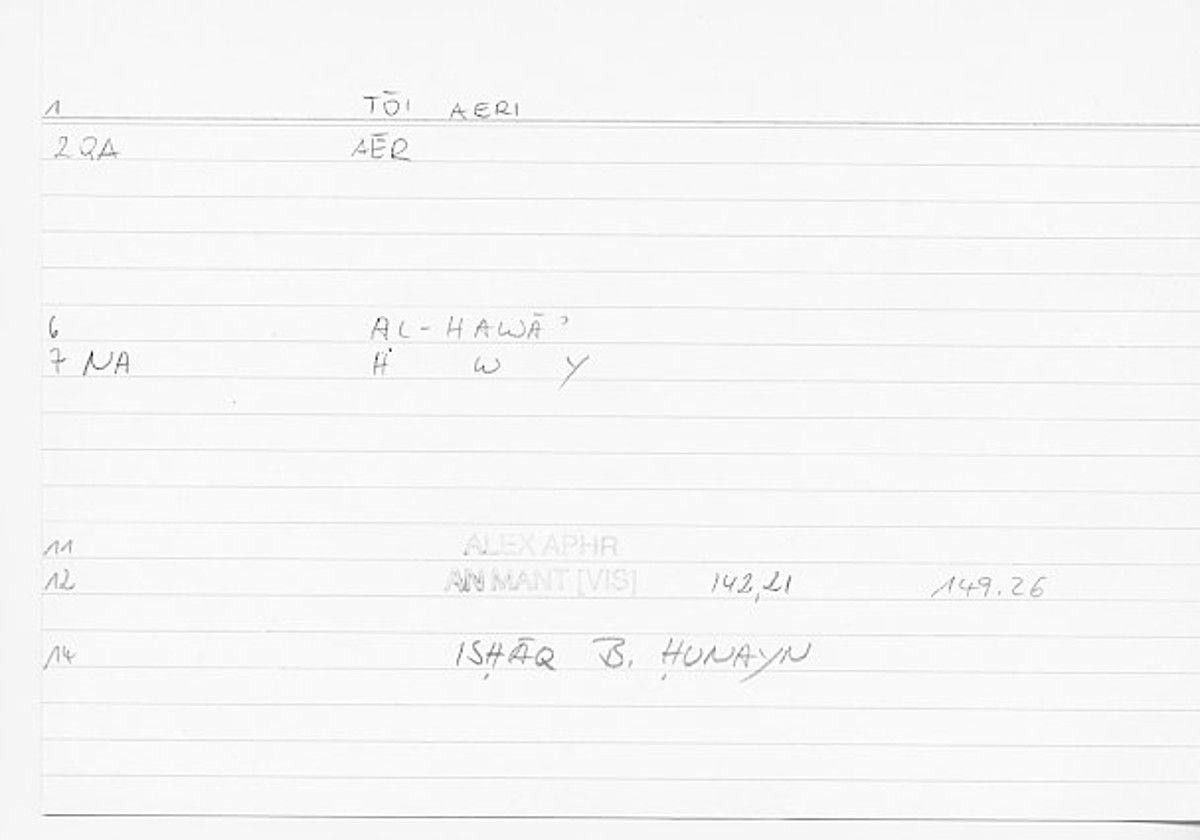 1 TŌI AERI
2 QA AĒR
6 AL-HAWĀʾ
7 NA H W Y
11 ALEX APHR
12 AN MANT [VIS] 142,21 149.26
14 ISḤĀQ B. ḤUNAYN